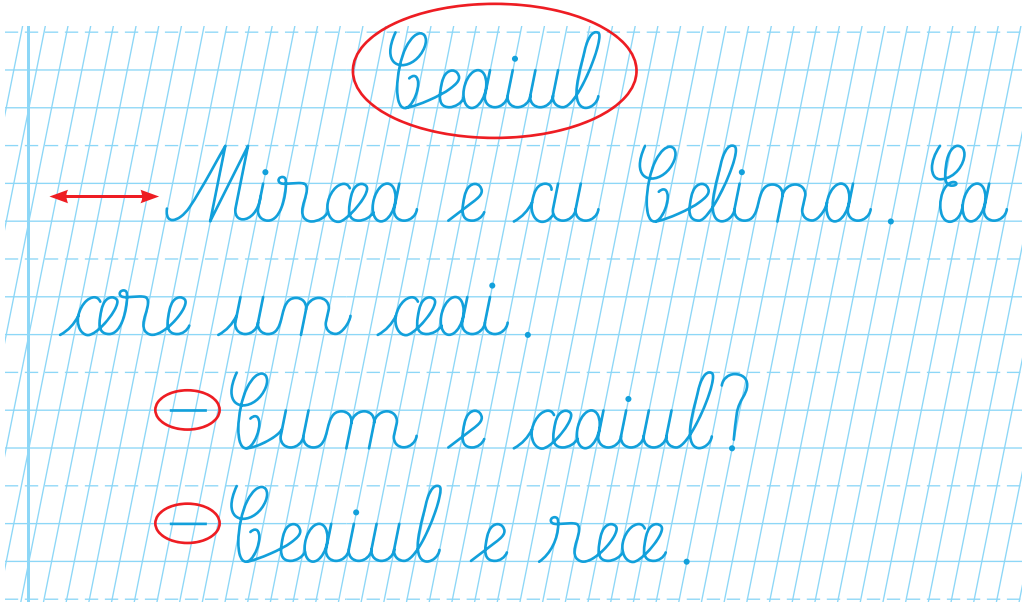 Ceaiul
Mircea e cu Celina. Ea
cere un ceai.
– Cum e ceaiul?
– Ceaiul e rece.